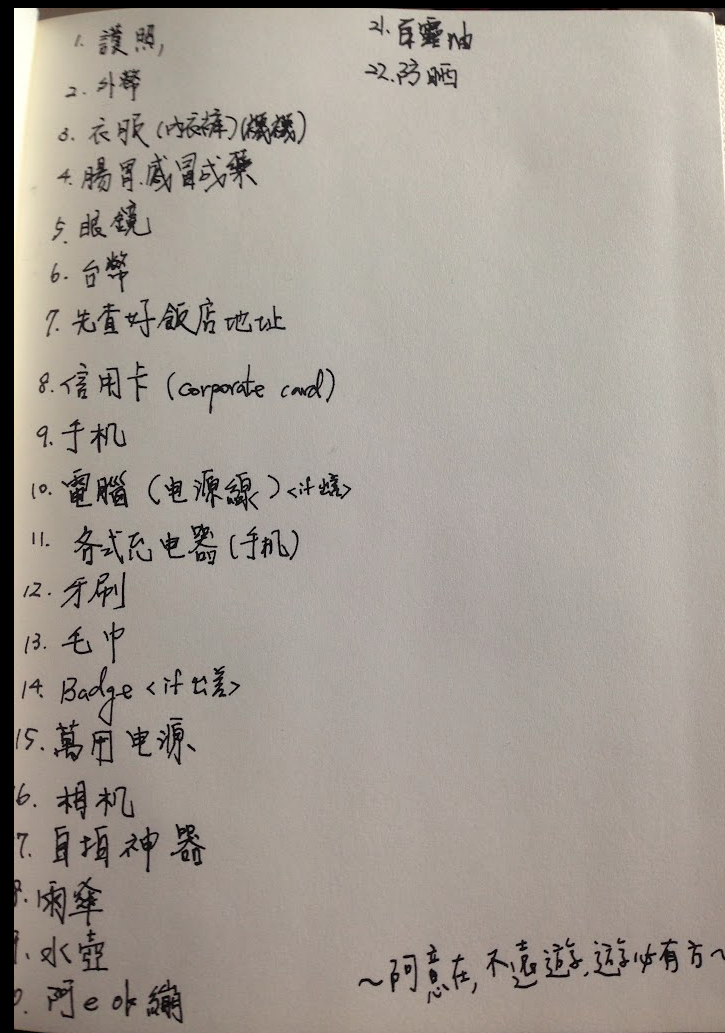 1. 護照,
2. 外幣
3. 衣服(內衣褲)(襪襪)
4. 腸胃.感冒成藥
5. 眼鏡
6. 台幣
7. 先查好飯店地址
8. 信用卡 (corporate card)
9. 手机
10. 電腦 (电源線) <if 出差>
11. 各式充电器 (手机)
12. 牙刷
13. 毛巾
14. Badge <if 出差>
15. 萬用电源
6. 相机
7. 自拍神器
8. 雨傘
9. 水壺
0. 阿e ok繃
21. 白靈油
22. 防晒
~阿意在, 不遠遊, 遊必有方~